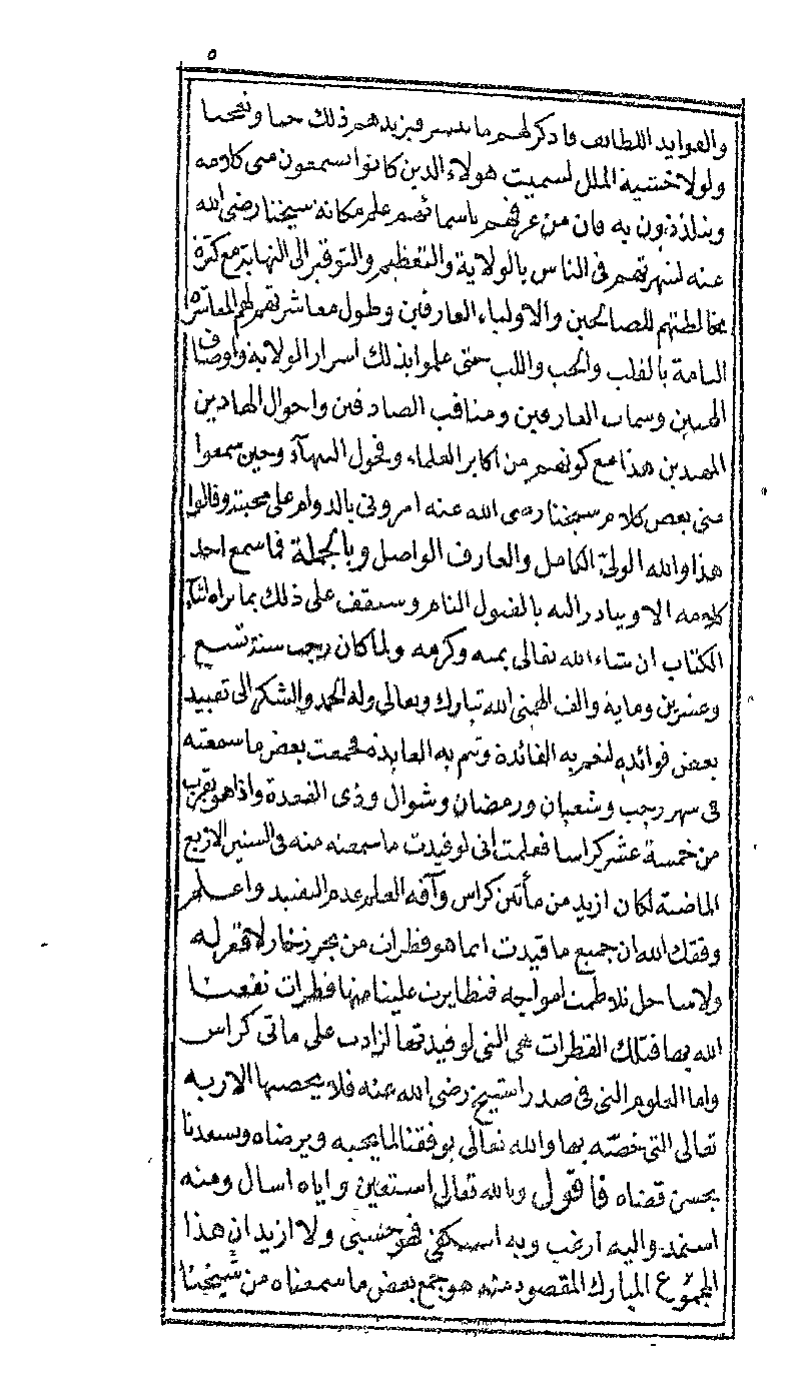 ٥
والفوايد اللطايف فاذكر لهم ما تيسر فيزيدهم ذلك حبا وتعجبا
ولولا خشية الملل لسميت هولاء الذين كانوا يسمعون مني كلامه
ويتلذذون به فان من عرفهم باسمائهم علم مكانة شيخنا رضي الله
عنه لشهرتهم فى الناس بالولاية والتعظيم والتوقير الى النهاية مع كثرة
مخالطتهم للصالحين والاولياء العارفين وطول معاشرتهم لهم المعاشرة
التامة بالقلب والحب واللب حتى علموا بذلك اسرار الولاية واوصاف
المحبين وسمات العارفين ومناقب الصادقين واحوال الهادين
المهديين هذا مع كونهم من اكابر العلماء وفحول الفقهاء وحين سمعوا
مني بعض كلام شيخنا رضى الله عنه امروني بالدوام على محبته وقالوا
هذا والله الولي الكامل والعارف الواصل وبالجملة فما سمع احد
كلامه الا ويبادر اليه بالقبول التام وستقف على ذلك بما تراه اثناء
الكتاب ان شاء الله تعالى بمنه وكرمه ولما كان رجب سنة تسع
وعشرين وماية والف الهمني الله تبارك وتعالى وله الحمد والشكر الى تقييد
بعض فوائده لتعم به الفائدة وتتم به العايدة فجمعت بعض ما سمعته
فى شهر رجب وشعبان ورمضان وشوال وذى القعدة واذا هو يقرب
من خمسة عشر كراسا فعلمت انى لو قيدت ما سمعته منه فى السنين الاربع
الماضية لكان ازيد من مأتين كراس وآفة العلم عدم التقييد واعلم
وفقك الله ان جميع ما قيدت انما هو قطرات من بحر زخار لا قعر له
ولا ساحل تلاطمت امواجه فتطايرت علينا منها قطرات نفعنا
الله بها فتلك القطرات هي التي لو قيدتها لزادت على مائتى كراس
واما العلوم التي فى صدر الشيخ رضي الله عنه فلا يحصيها الا ربه
تعالى التي خصه بها والله تعالى يوفقنا لما يحبه ويرضاه ويسعدنا
بحسن قضاه فاقول وبالله تعالى استعين واياه اسال ومنه
استمد واليه ارغب وبه استكفي فهو حسبى ولا ازيد ان هذا
المجموع المبارك المقصود منه هو جمع بعض ما سمعناه من شيخنا